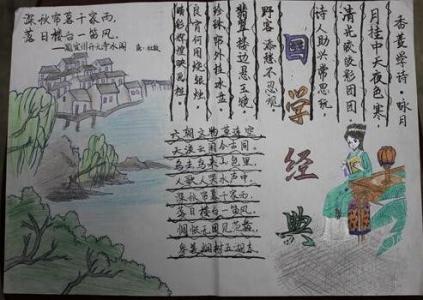 深秋帘幕千家雨，
落日楼台一笛风。
——题宣州开元寺水阁 唐·杜牧
国学经典
香菱学诗·咏月
月挂中天夜色寒，
清光皎皎影团团。
诗人助兴常思玩，
野客添愁不忍观。
翡翠楼边悬玉镜，
珍珠帘外挂冰盘。
良宵何用烧银烛，
晴彩辉煌映画栏。
六朝文物草连空
天淡云闲今古同。
鸟去鸟来山色里，
人歌人哭水声中。
深秋帘幕千家雨，
落日楼台一笛风。
惆怅无因见范蠡，
参差烟树五湖东。